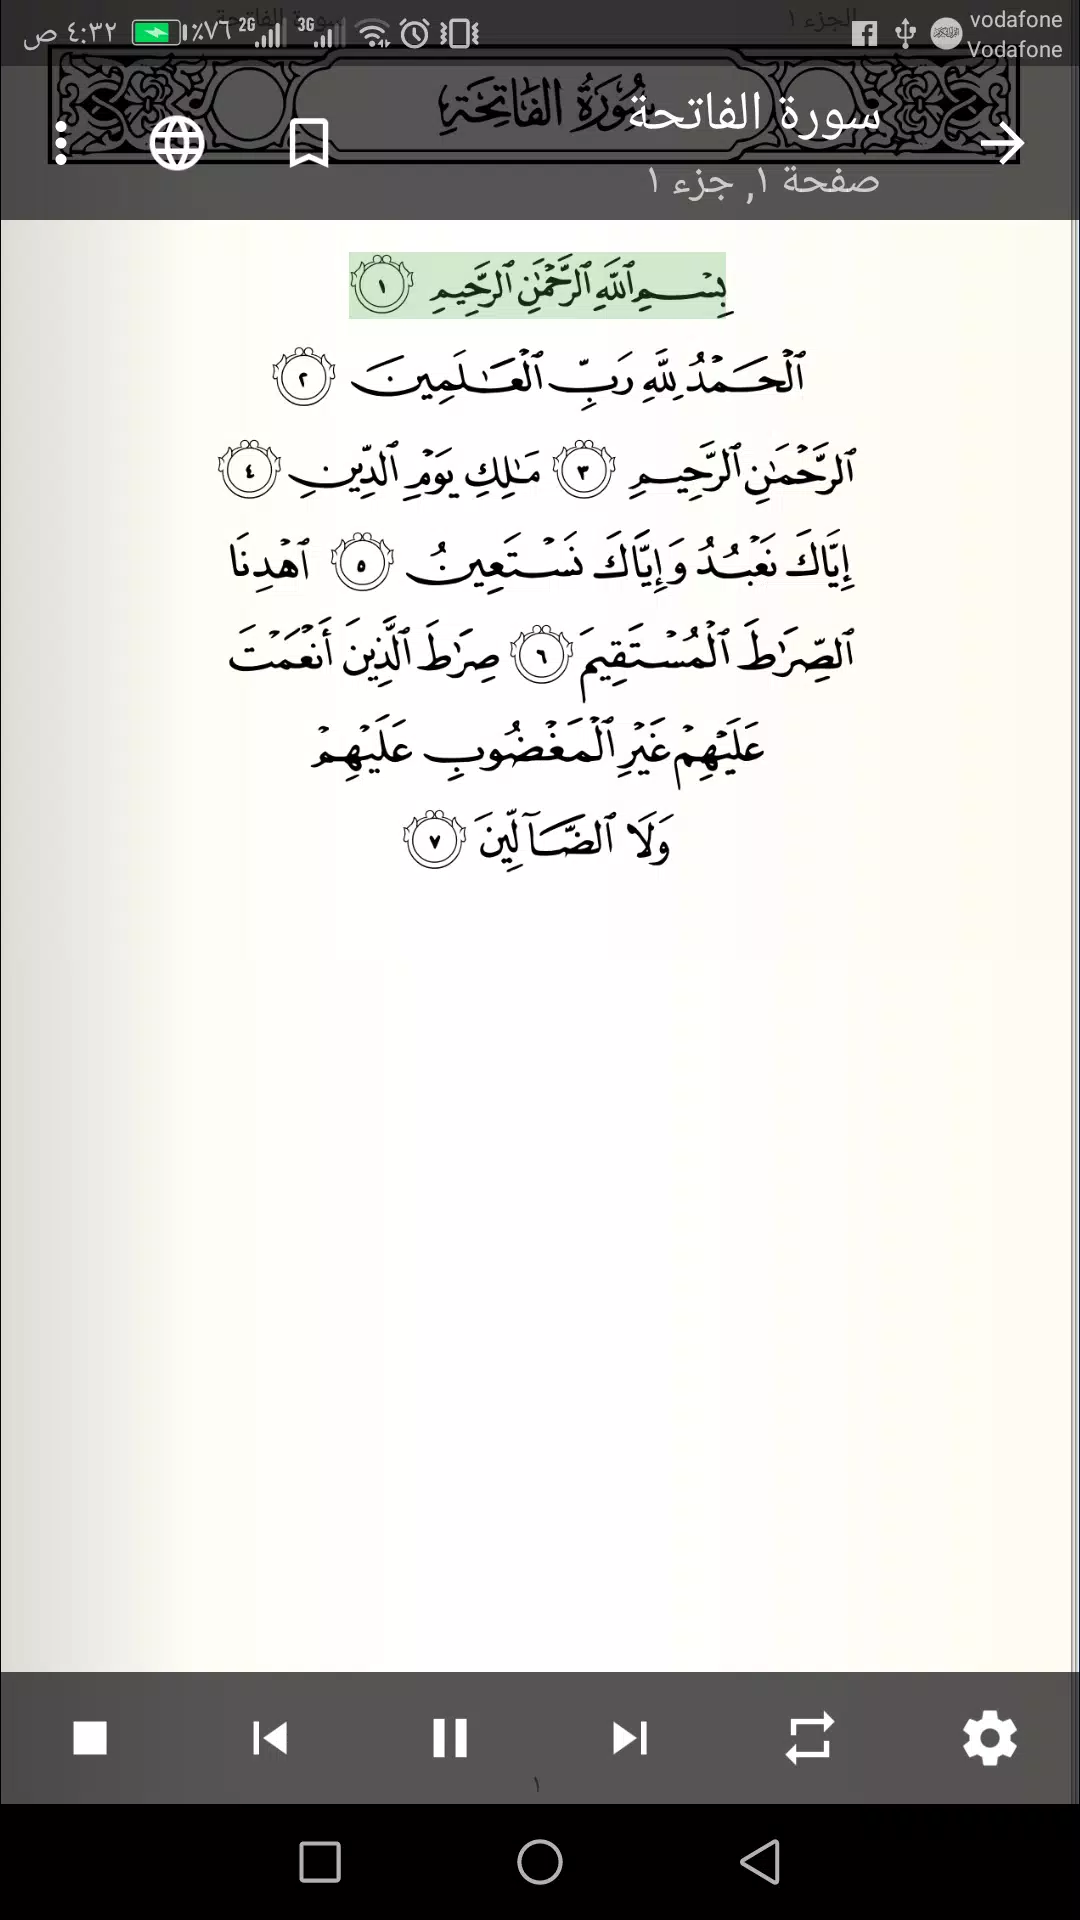 ٤:٣٢ ص ٪٧٦ 2G 3G vodafone
Vodafone
سورة الفاتحة الجزء ١
سُورَةُ الفَاتِحَةِ
سورة الفاتحة
صفحة ١, جزء ١
بِسْمِ ٱللَّهِ ٱلرَّحْمَٰنِ ٱلرَّحِيمِ ١
ٱلْحَمْدُ لِلَّهِ رَبِّ ٱلْعَٰلَمِينَ ٢
ٱلرَّحْمَٰنِ ٱلرَّحِيمِ ٣ مَٰلِكِ يَوْمِ ٱلدِّينِ ٤
إِيَّاكَ نَعْبُدُ وَإِيَّاكَ نَسْتَعِينُ ٥ ٱهْدِنَا
ٱلصِّرَٰطَ ٱلْمُسْتَقِيمَ ٦ صِرَٰطَ ٱلَّذِينَ أَنْعَمْتَ
عَلَيْهِمْ غَيْرِ ٱلْمَغْضُوبِ عَلَيْهِمْ
وَلَا ٱلضَّآلِّينَ ٧
١